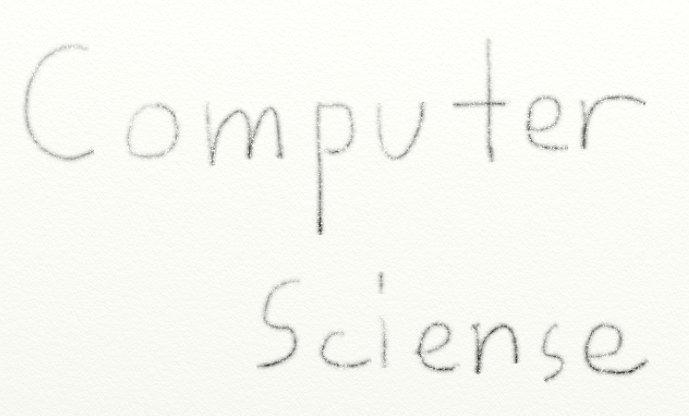 Computer
Sciense